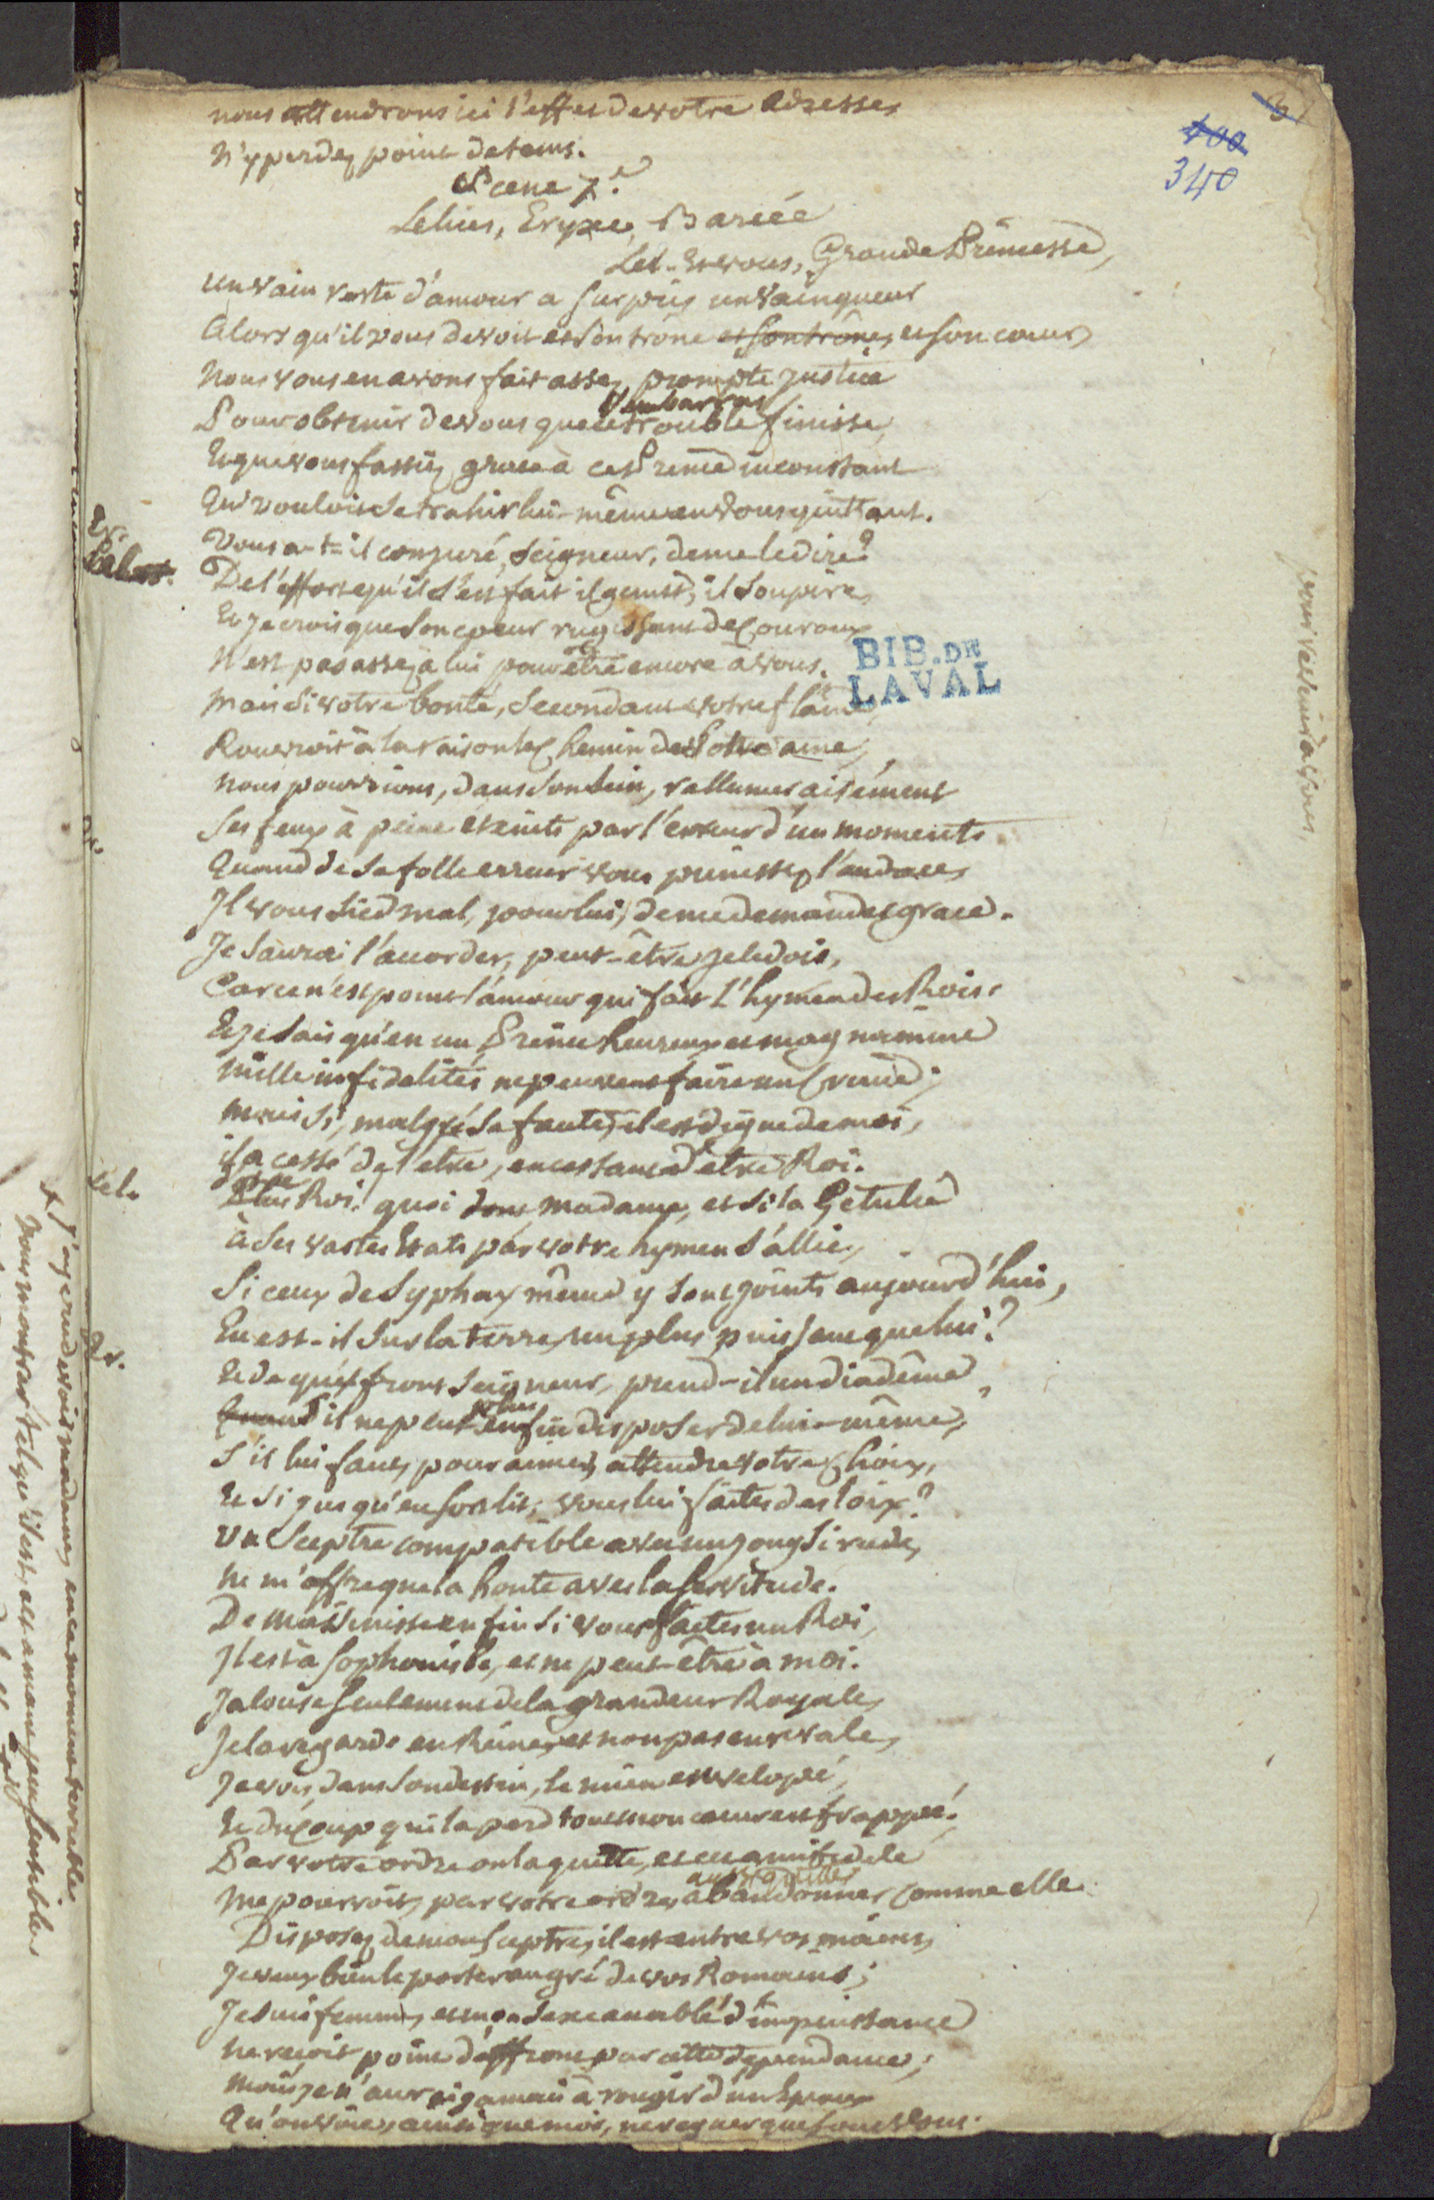 400
340
nous attendrons ici l'effet de votre adresse,
N'y perdez point de tems.
Scene 7.e
Lelius, Eryxe, Barcée
Lel. Et vous, Grande Princesse,
un vain reste d'amour a surpris un vainqueur
Alors qu'il vous devoit et son trône et son trône, et son coeur,
Nous vous en avons fait assez prompte justice
l'embarras
Pour obtenir de vous que ce trouble finisse,
Et que vous fassiez grace à ce Prince inconstant
Qui vouloit se trahir lui-même en vous quittant.
Er.
Vous a-t-il conjuré, Seigneur, de me le dire?
Lel.
De l'effort qu'il s'est fait il gemit, il soupire,
Et je crois que son coeur rugissant de Couroux
N'est pas assez à lui pour être encore à vous.
BIB. DE
LAVAL
Mais si votre bonté, secondant votre flame,
Rouvroit à la raison le Chemin de votre ame,
nous pourrions, dans son sein, rallumer aisément
Ses feux à peine éteints par l'erreur d'un moment.
Er.
Quand de sa folle erreur vous punissez l'audace,
Il vous sied mal, pour lui, de me demander grace.
Je saurai l'accorder, peut-être je le dois,
Car ce n'est point l'amour qui fait l'hymen des Rois.
Et je sais qu'en un Prince heureux et magnanime
Mille infidelités ne peuvent faire un Crime;
mais si, malgré sa faute, il est digne de moi,
il a cessé de l'etre, en cessant d'être Roi.
Lel.
Plus Roi! quoi donc madame, et si la Getulie
à ses vastes Etats par votre hymen s'allie,
Si ceux de Syphax même y sont joints aujourd'hui,
En est-il sur la terre, un plus puissant que lui?
Er.
Et de quel front Seigneur, prend-il un diadême,
plus
Quand il ne peut enfin disposer de lui-même,
S'il lui faut, pour aimer, attendre votre Choix,
Et si jusqu'en son lit, vous lui faites des loix?
Un Sceptre compatible avec un joug si rude,
Ne m'offre que la honte avec la servitude.
De Massinisse enfin si vous faites un Roi,
Il est à Sophonisbe, et ne peut-être à moi.
Jalouse seulement de la grandeur Royale,
Je la regarde en Reine, et non pas en rivale,
Je vois, dans son destin, le mien envelopé,
Et du Coup qui la perd tout mon coeur est frappé.
Par votre ordre on la quitte, et cet ami fidele
aussi quitter
Me pourroit, par votre ordre, abandonner comme elle.
Disposez de mon Sceptre, il est entre vos mains,
Je veux bien le porter au gré de vos Romains;
Je suis femme, et mon sexe accablé d'impuissance
Ne reçoit point d'affront par cette dependance;
Mais je n'aurai jamais à rougir d'un Epoux
Qu'on voie, ainsi que moi, ne regner que sous vous.
+ J'ai cru devoir madame, en ce moment terrible
Vous montrer tel qu'il est, cet amant peu sensible